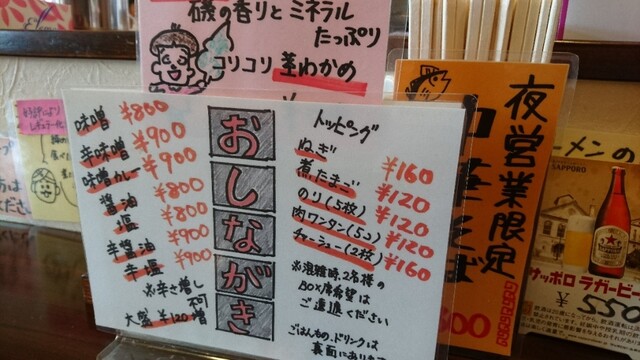 磯の香りとミネラル
たっぷり
コリコリ 茎わかめ
おしながき
味噌 ¥800
辛味噌 ¥900
味噌カレー ¥900
醤油 ¥800
塩 ¥800
辛醤油 ¥900
辛塩 ¥900
※辛さ増し
可
大盛 ¥120増
トッピング
ねぎ ¥160
煮たまご ¥120
のり(5枚) ¥120
肉ワンタン(5コ) ¥120
チャーシュー(2枚) ¥160
※混雑時、2名様の
BOX席希望は
ご遠慮ください
ごはんもの、ドリンクは
裏面にあります
夜営業限定
ーメンの
SAPPORO
サッポロ ラガービー
¥550